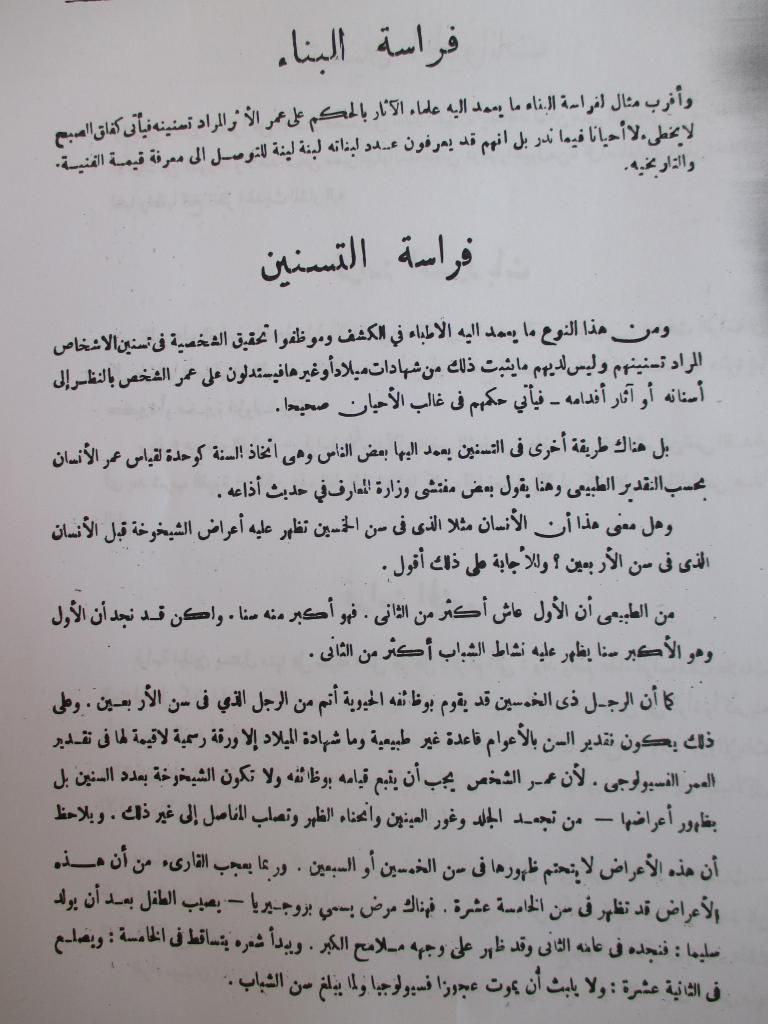 فراسة البناء
وأقرب مثال لفراسة البناء ما يعمد اليه علماء الآثار بالحكم على عمر الأثر المراد تسنينه فيأتى كفلق الصبح
لا يخطىء لا أحيانا فيما ندر بل انهم قد يعرفون عدد لبناته لبنة لبنة للتوصل الى معرفة قيمة الفنية
والتاريخيه.
فراسة التسنين
ومن هذا النوع ما يعمد اليه الاطباء في الكشف وموظفوا تحقيق الشخصية فى تسنين الاشخاص
المراد تسنينهم وليس لديهم مايثبت ذلك من شهادات ميلاد أو غيرها فيستدلون على عمر الشخص بالنظر إلى
أسنانه أو آثار أقدامه – فيأتي حكمهم فى غالب الأحيان صحيحا.
بل هناك طريقة أخرى فى التسنين يعمد اليها بعض الناس وهى اتخاذ السنة كوحدة لقياس عمر الأنسان
بحسب التقدير الطبيعى وهنا يقول بعض مفتشى وزارة المعارف في حديث أذاعه.
وهل معنى هذا أن الأنسان مثلا الذى فى سن الخمسين تظهر عليه أعراض الشيخوخة قبل الأنسان
الذى فى سن الأربعين ؟ وللأجابة على ذلك أقول.
من الطبيعى أن الأول عاش أكثر من الثانى. فهو أكبر منه سنا. ولكن قد نجد أن الأول
وهو الأكبر سنا يظهر عليه نشاط الشباب أكثر من الثانى.
كما أن الرجل ذى الخمسين قد يقوم بوظائفه الحيوية أتم من الرجل الذي فى سن الأربعين. وعلى
ذلك يكون تقدير السن بالأعوام قاعدة غير طبيعية وما شهادة الميلاد إلا ورقة رسمية لاقيمة لها فى تقدير
العمر الفسيولوجى. لأن عمر الشخص يجب أن يتبع قيامه بوظائفه ولا تكون الشيخوخة بعدد السنين بل
بظهور أعراضها — من تجعد الجلد وغور العينين وانحناء الظهر وتصلب المفاصل إلى غير ذلك. ويلاحظ
أن هذه الأعراض لا يتحتم ظهورها فى سن الخمسين أو السبعين. وربما يعجب القارىء من أن هذه
الأعراض قد تظهر فى سن الخامسة عشرة. فهناك مرض يسمي بزوجيريا — يصيب الطفل بعد أن يولد
سليما : فنجده فى عامه الثانى وقد ظهر على وجهه ملامح الكبر. ويبدأ شعره يتساقط فى الخامسة : ويصلع
فى الثانية عشرة : ولا يلبث أن يموت عجوزا فسيولوجيا ولما يبلغ سن الشباب.